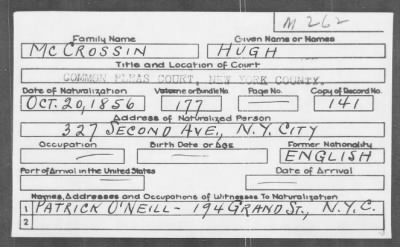 M 262
Family Name Given Name or Names
MCCROSSIN HUGH
Title and Location of Court
COMMON PLEAS COURT, NEW YORK COUNTY.
Date of Naturalization Volume or Bundle No. Page No. Copy of Record No.
OCT. 20, 1856 177 — 141
Address of Naturalized Person
327 SECOND AVE., N.Y. CITY
Occupation Birth Date or Age Former Nationality
— — ENGLISH
Port of Arrival in the United States Date of Arrival
— —
Names, Addresses and Occupations of Witnesses To Naturalization
1 PATRICK O'NEILL - 194 GRAND ST., N.Y.C.
2